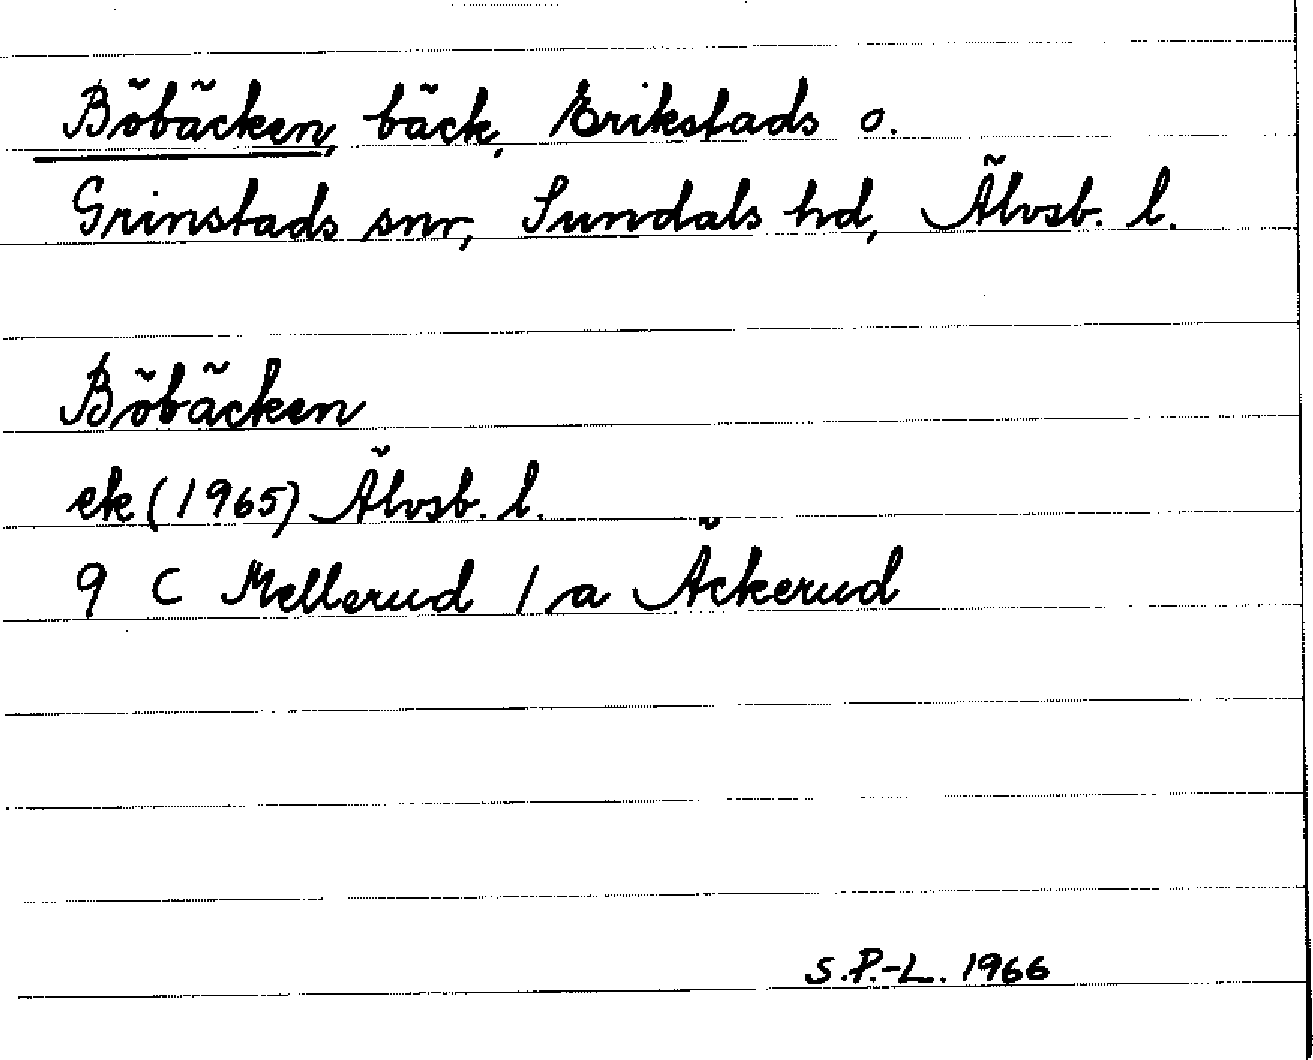 Böbäcken, bäck, Erikstads o.
Grinstads snr, Sundals hd, Älvsb. l.
Böbäcken
ek (1965) Älvsb. l.
9 C Mellerud 1 a Äckerud
S.P.-L. 1966